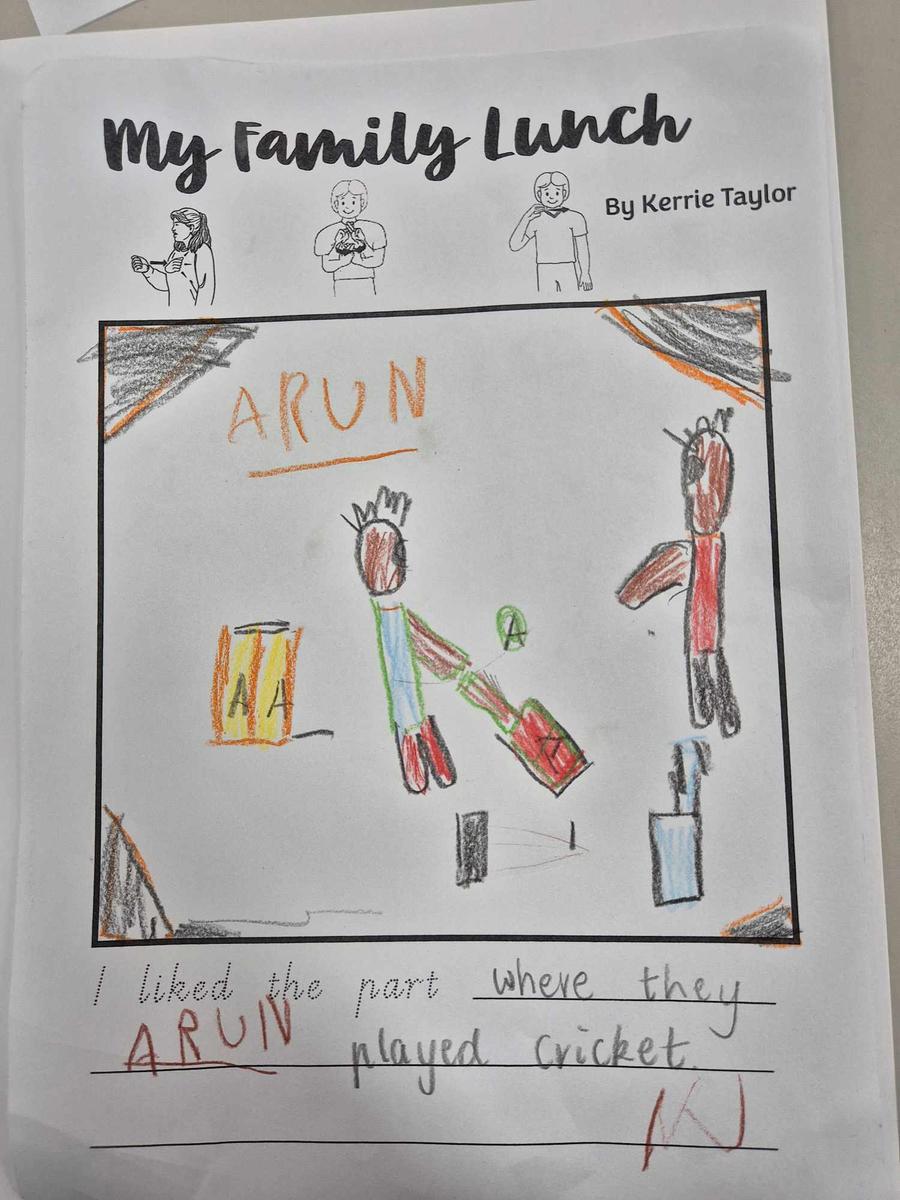 My Family Lunch
By Kerrie Taylor
ARUN
A
A A
A
I liked the part where they
ARUN played cricket.
N